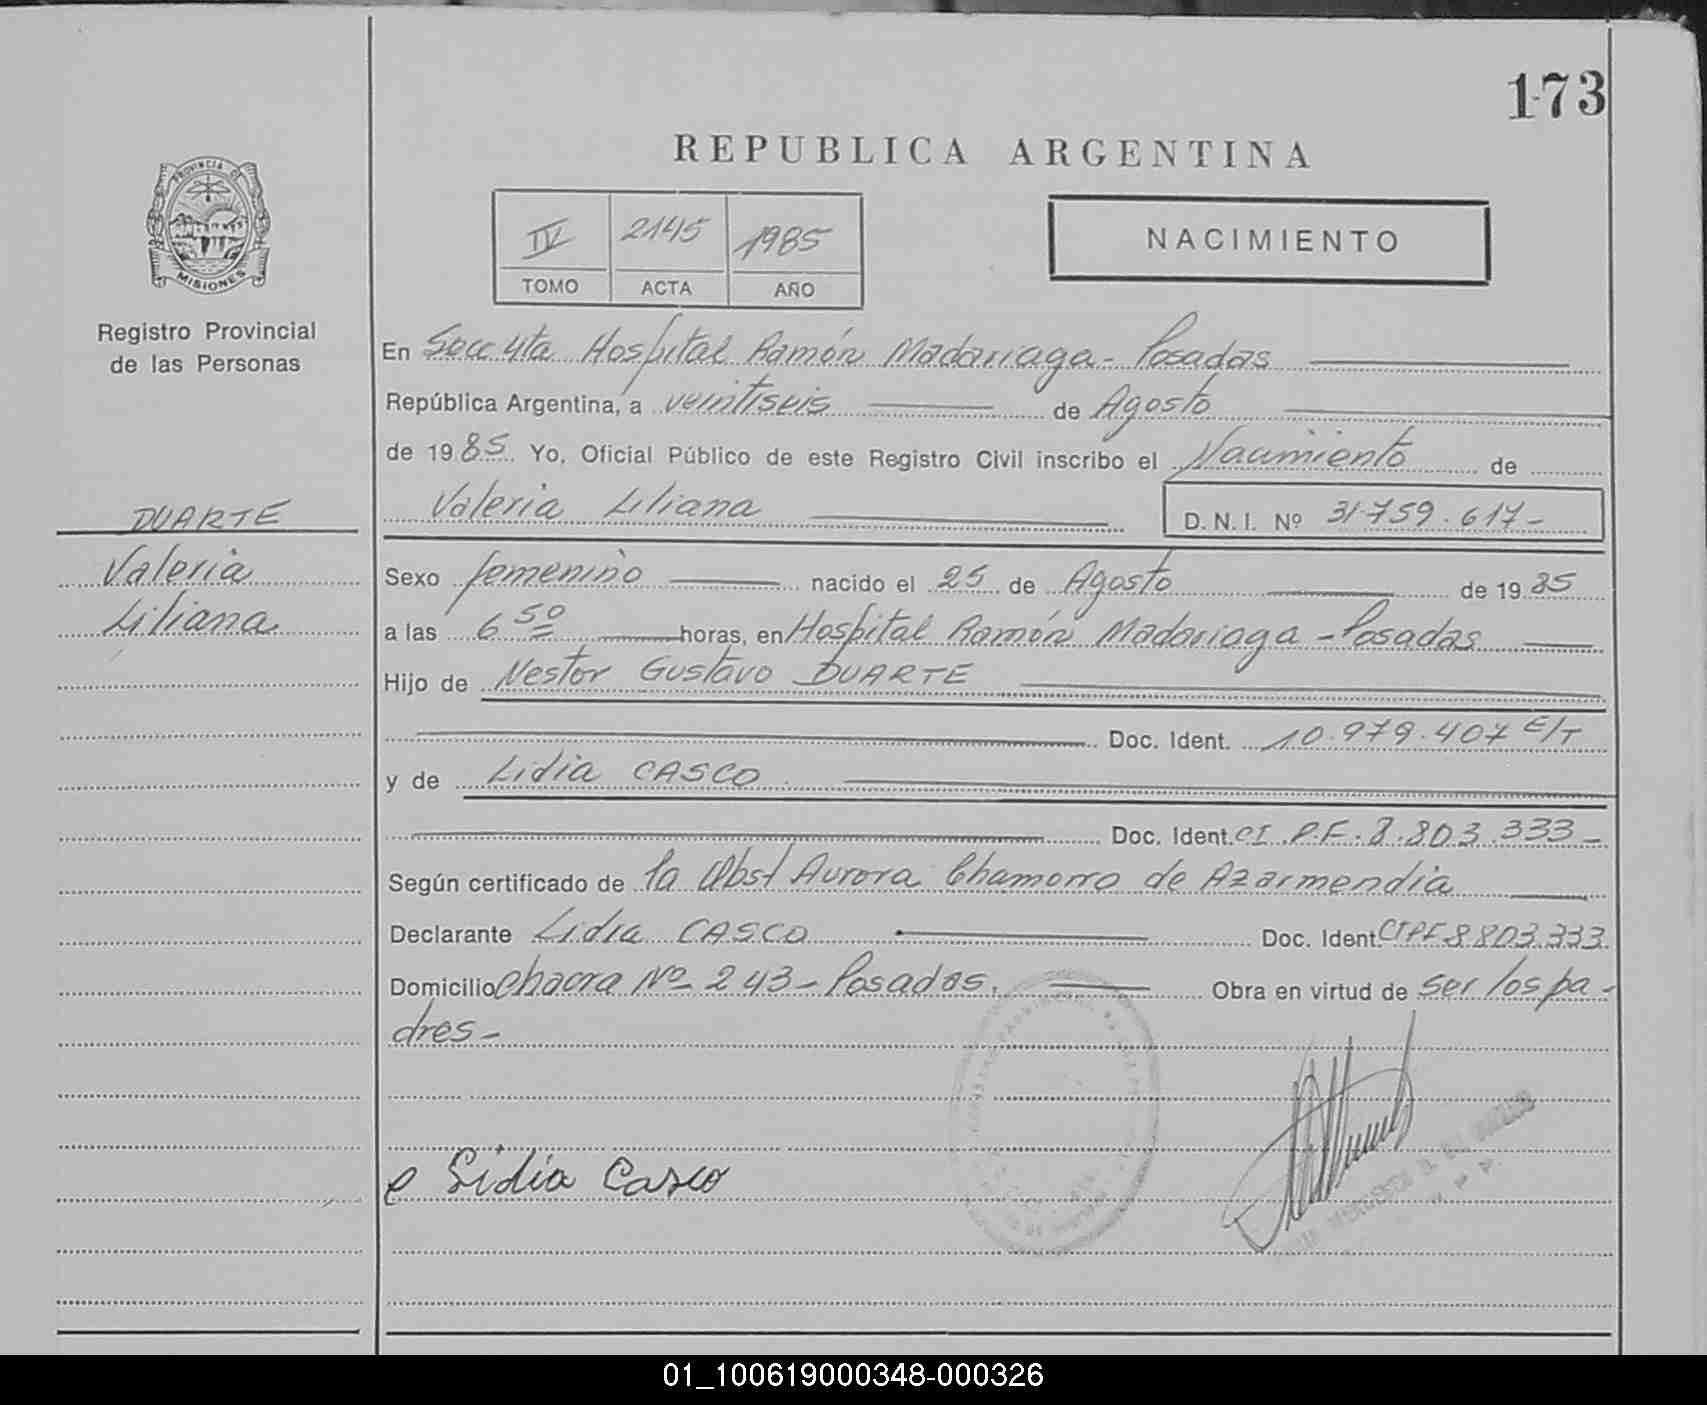 173
REPUBLICA ARGENTINA
PROVINCIA DE
MISIONES
Registro Provincial
de las Personas
IV 2145 1985
TOMO ACTA AÑO
NACIMIENTO
En Secc 4ta Hospital Ramón Madariaga - Posadas
República Argentina, a veintiseis de Agosto
de 1985. Yo, Oficial Público de este Registro Civil inscribo el Nacimiento de
Valeria Liliana D.N.I. Nº 31.759.617-
DUARTE
Valeria
Liliana
Sexo femenino nacido el 25 de Agosto de 1985
a las 6 50 horas, en Hospital Ramón Madariaga - Posadas
Hijo de Nestor Gustavo DUARTE
Doc. Ident. 10.979.407 E/T
y de Lidia CASCO
Doc. Ident. CI.P.F. 8.803.333-
Según certificado de la Obst Aurora Chamorro de Azarmendia
Declarante Lidia CASCO Doc. Ident CIPF 8.803.333.
Domicilio Chacra Nº 243 - Posadas. Obra en virtud de ser los pa-
dres-
Lidia Casco
01_100619000348-000326